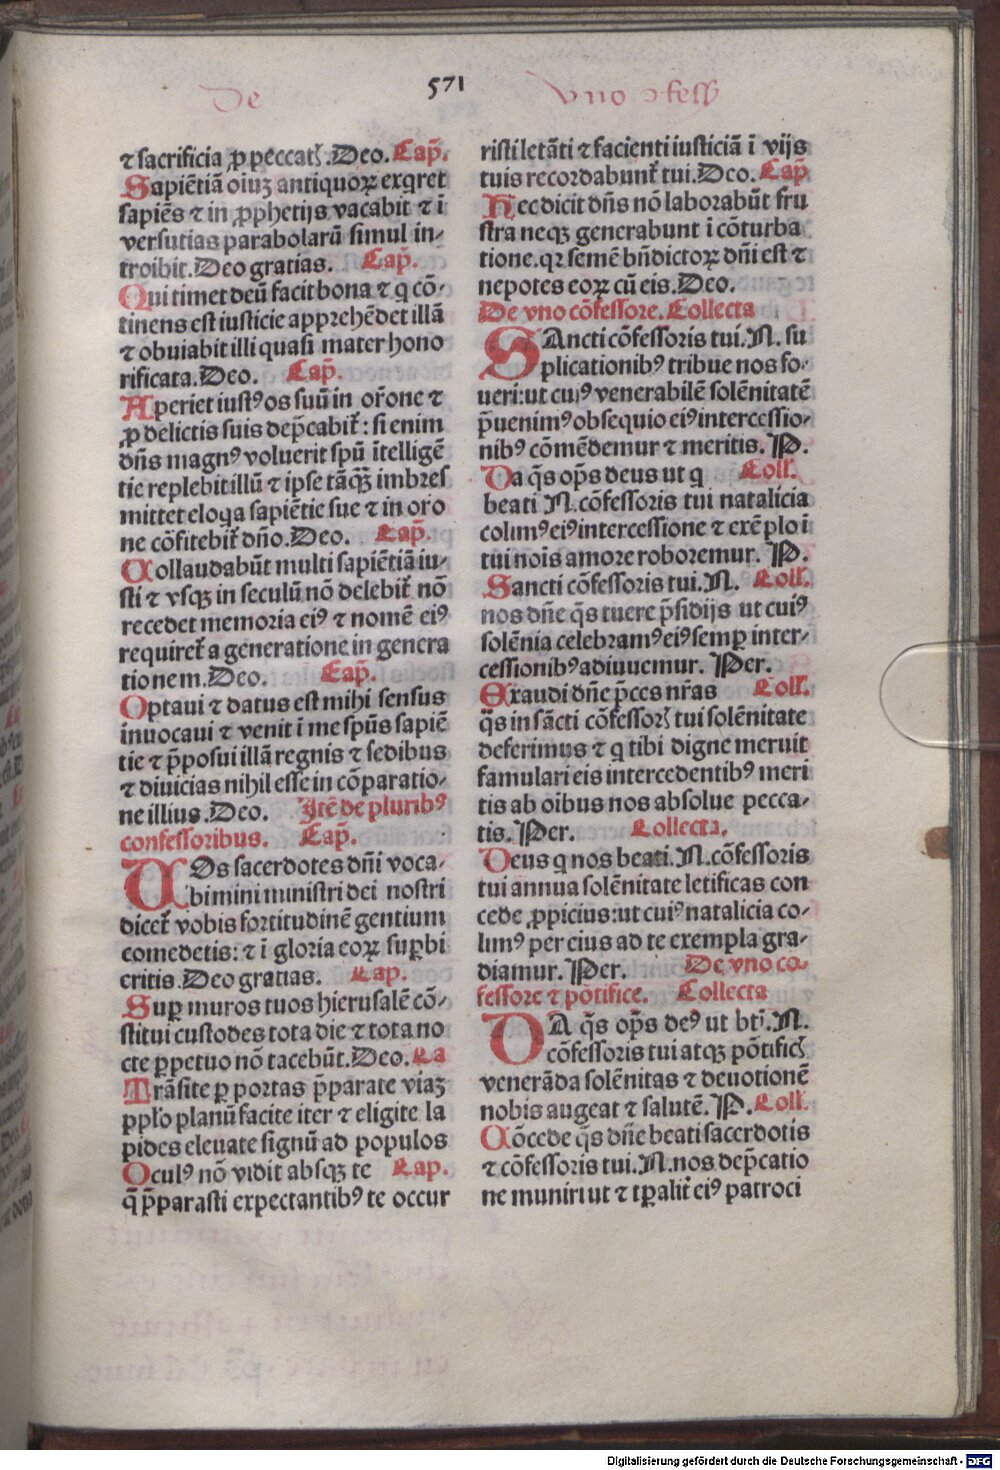 571
De vno ɔfess
⁊ sacrificia ꝓ peccatꝭ. Deo. Cap̄.
Sapiētiā oiuꝫ antiquoꝝ exqret
sapiēs ⁊ in ꝓphetijs vacabit ⁊ ī
versutias parabolarū simul in-
troibit. Deo gratias. Cap̄.
Qui timet deū facit bona ⁊ q cō-
tinens est iusticie apprehēdet illā
⁊ obuiabit illi quasi mater hono
rificata. Deo. Cap̄.
Aperiet iustꝰ os suū in or̄one ⁊
ꝓ delictis suis dep̄cabit᷑: si enim
dn̄s magnꝰ voluerit spū ītelligē
tie replebit illū ⁊ ipse tāꝗ̄ꝗ̄ imbres
mittet eloqa sapiētie sue ⁊ in oro
ne cōfitebit᷑ dn̄o. Deo. Cap̄.
Collaudabūt multi sapiētiā iu-
sti ⁊ vsqꝫ in seculū nō delebit᷑ nō
recedet memoria eiꝰ ⁊ nomē eiꝰ
requiret᷑ a generatione in genera
tionem. Deo. Cap̄.
Optaui ⁊ datus est mihi sensus
inuocaui ⁊ venit ī me spūs sapiē
tie ⁊ p̄posui illā regnis ⁊ sedibus
⁊ diuicias nihil esse in cōparatio-
ne illius. Deo. Jtē de pluribꝰ
confessoribus. Cap̄.
VOs sacerdotes dn̄i voca-
bimini ministri dei nostri
dicet᷑ vobis fortitudinē gentium
comedetis: ⁊ ī gloria eoꝝ suꝑbi
eritis. Deo gratias. Cap.
Suꝑ muros tuos hierusalē cō-
stitui custodes tota die ⁊ tota no
cte ꝑpetuo nō tacebūt. Deo. Ca
Trāsite ꝑ portas p̄parate viaꝫ
pplo planū facite iter ⁊ eligite la
pides eleuate signū ad populos
Oculꝰ nō vidit absqꝫ te Cap.
q̄ p̄parasti expectantibꝰ te occur
risti letāti ⁊ facienti iusticiā ī vijs
tuis recordabunt᷑ tui. Deo. Cap̄
Hec dicit dn̄s nō laborabūt fru
stra neqꝫ generabunt ī cōturba
tione. qꝛ semē bn̄dictoꝝ dn̄i est ⁊
nepotes eoꝝ cū eis. Deo.
De vno cōfessore. Collecta
SAncti cōfessoris tui. N. su
plicationibꝰ tribue nos fo-
ueri: ut cuiꝰ venerabilē solēnitatē
p̄uenimꝰ obsequio eiꝰ intercessio-
nibꝰ cōmēdemur ⁊ meritis. P.
Da q̄s op̄s deus ut q Coll.
beati N. cōfessoris tui natalicia
colimꝰ eiꝰ intercessione ⁊ exēplo ī
tui nois amore roboremur. P.
Sancti cōfessoris tui. N. Coll.
nos dn̄e q̄s tuere p̄sidijs ut cuiꝰ
solēnia celebramꝰ eiꝰ semꝑ inter-
cessionibꝰ adiuuemur. Per.
Exaudi dn̄e p̄ces nr̄as Coll.
q̄s in sācti cōfessorꝭ tui solēnitate
deferimus ⁊ q tibi digne meruit
famulari eis intercedentibꝰ meri
tis ab oibus nos absolue pecca-
tis. Per. Collecta.
Deus q nos beati. N. cōfessoris
tui annua solēnitate letificas con
cede ꝓpicius: ut cuiꝰ natalicia co-
limꝰ per eius ad te exempla gra-
diamur. Per. De vno co-
fessore ⁊ pōtifice. Collecta
DA q̄s op̄s deꝰ ut bt̄i. N.
cōfessoris tui atqꝫ pōtificꝭ
venerāda solēnitas ⁊ deuotionē
nobis augeat ⁊ salutē. P. Coll.
Cōcede q̄s dn̄e beati sacerdotis
⁊ cōfessoris tui. N. nos dep̄catio
ne muniri ut ⁊ tꝑalit᷑ eiꝰ patroci
Digitalisierung gefördert durch die Deutsche Forschungsgemeinschaft - DFG